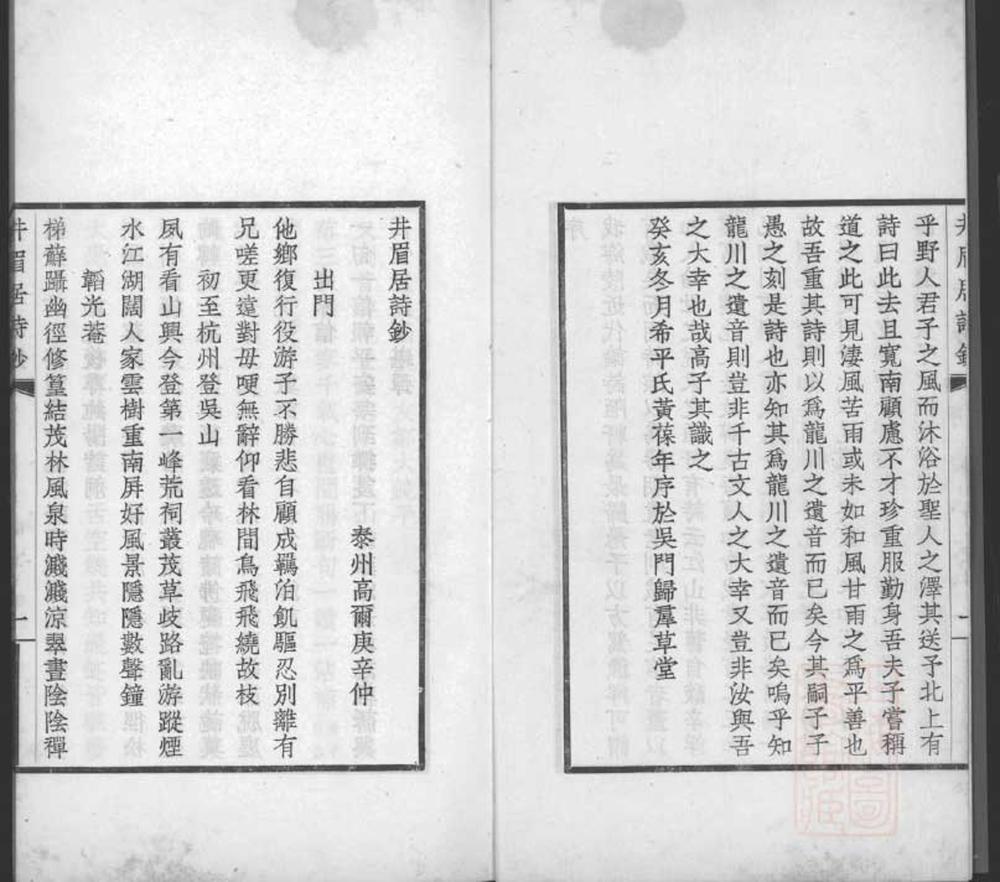 乎野人君子之風而沐浴於聖人之澤其送予北上有
詩曰此去且寬南顧慮不才珍重服勤身吾夫子嘗稱
道之此可見淒風苦雨或未如和風甘雨之爲平善也
故吾重其詩則以爲龍川之遺音而已矣今其嗣子子
愚之刻是詩也亦知其爲龍川之遺音而已矣嗚乎知
龍川之遺音則豈非千古文人之大幸又豈非汝與吾
之大幸也哉高子其識之
癸亥冬月希平氏黃葆年序於吳門歸羣草堂
井眉居詩鈔
泰州高爾庚辛仲
出門
他鄉復行役游子不勝悲自顧成羈泊飢驅忍別離有
兄嗟更遠對母哽無辭仰看林間鳥飛飛繞故枝
初至杭州登吳山
夙有看山興今登第一峰荒祠叢茂草歧路亂游蹤煙
水江湖闊人家雲樹重南屏好風景隱隱數聲鐘
韜光菴
梯蘚躡幽徑修篁結茂林風泉時濺濺涼翠晝陰陰禪
井眉居詩鈔
一